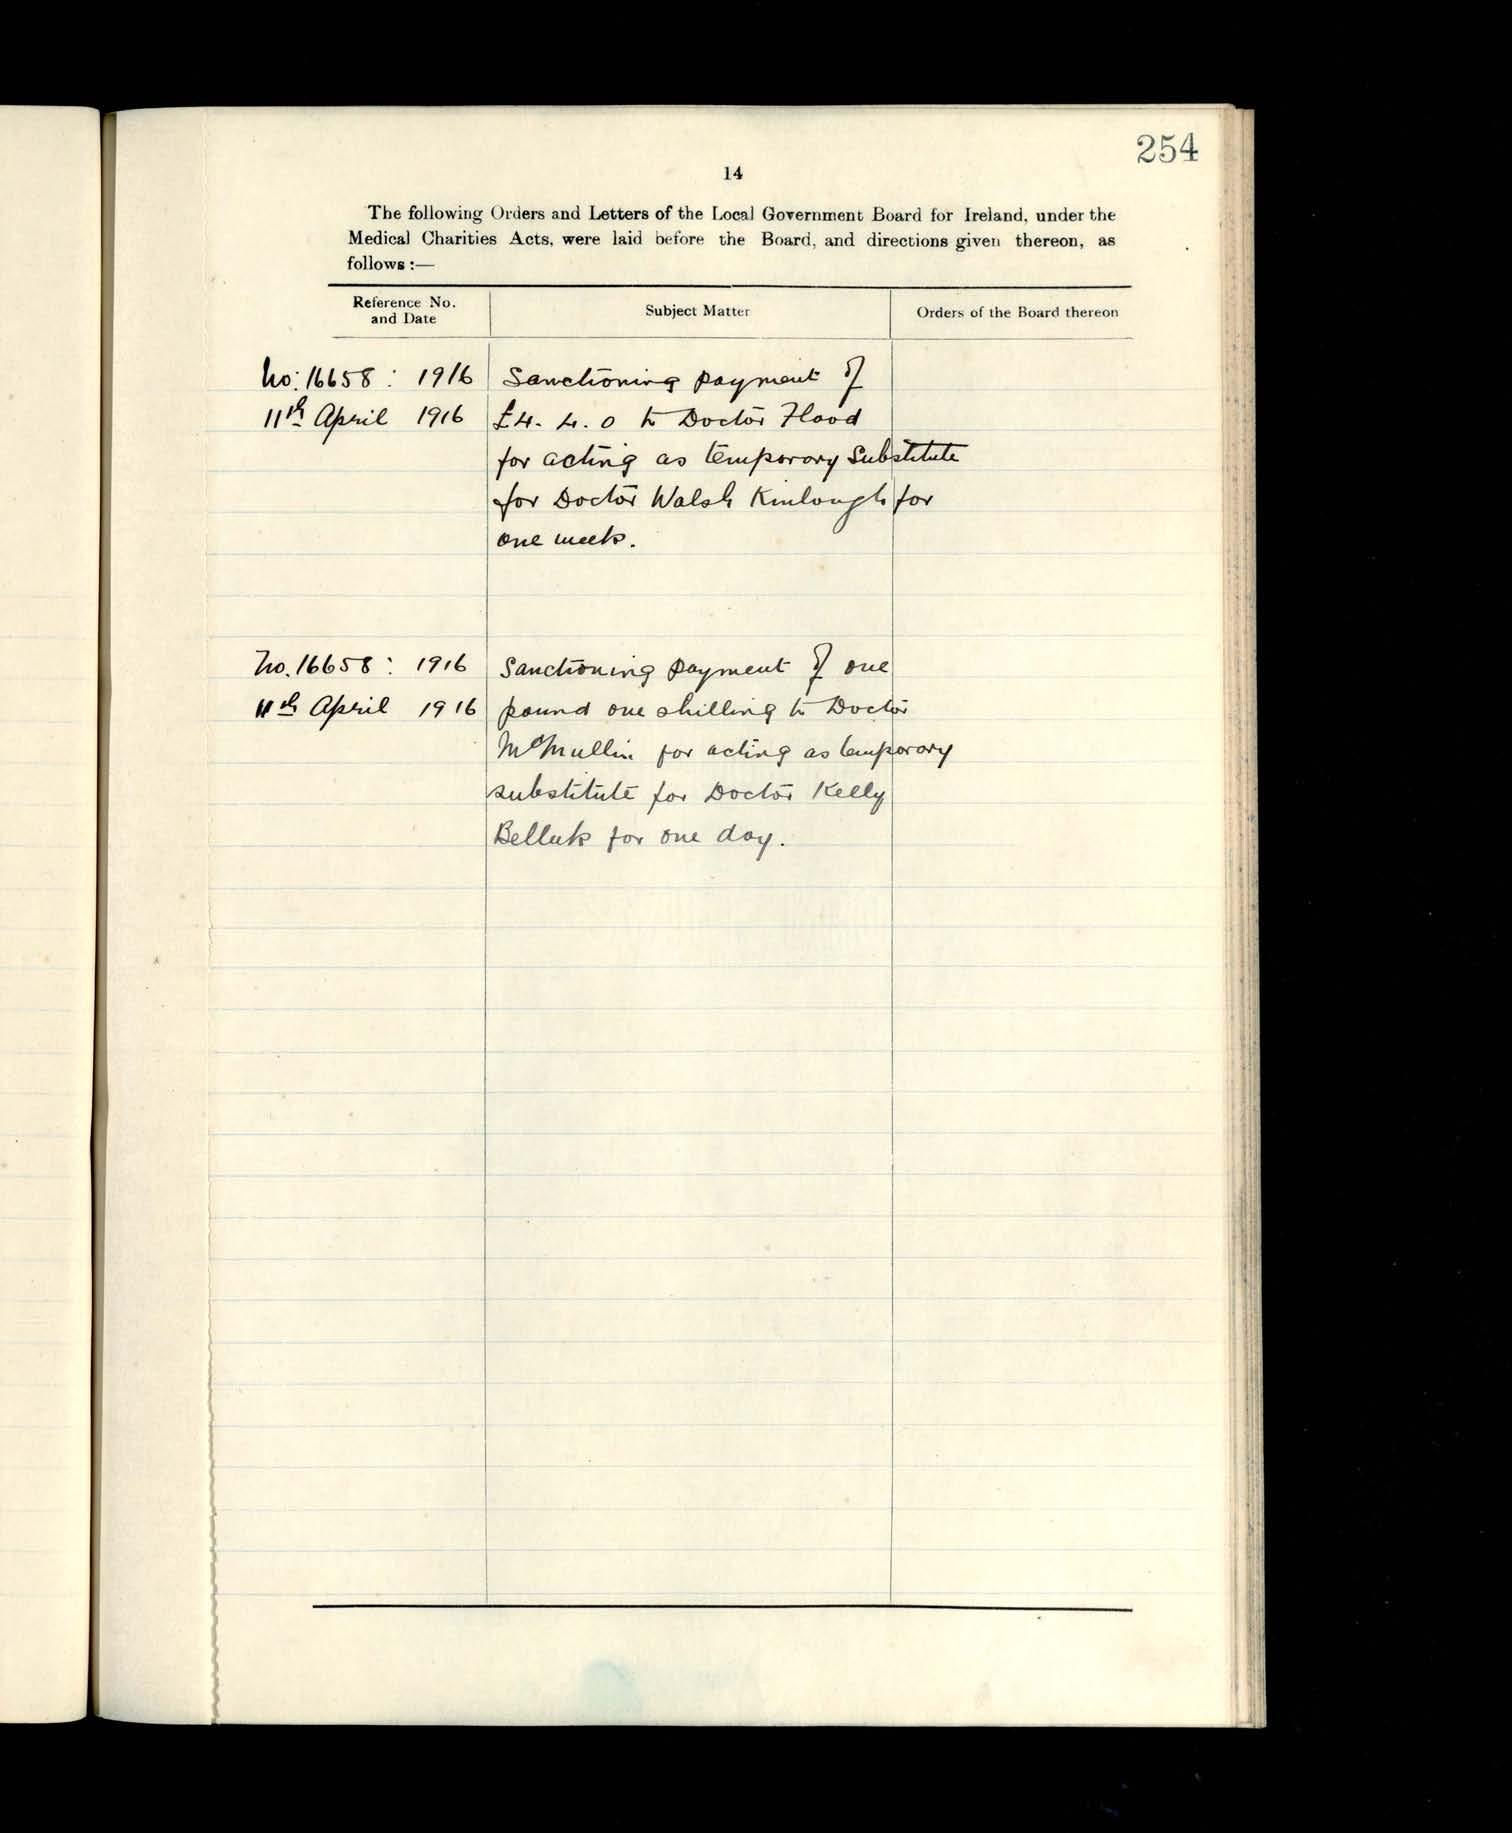 254
14
The following Orders and Letters of the Local Government Board for Ireland, under the
Medical Charities Acts, were laid before the Board, and directions given thereon, as
follows :—
Reference No. and Date
Subject Matter
Orders of the Board thereon
No: 16658 : 1916 Sanctioning payment of
11th April 1916 £4. 4. 0 to Doctor Flood
for acting as temporary Substitute
for Doctor Walsh Kinlough for
one week.
No. 16658 : 1916 Sanctioning payment of one
11th April 1916 pound one shilling to Doctor
McMullin for acting as temporary
substitute for Doctor Kelly
Belleek for one day.